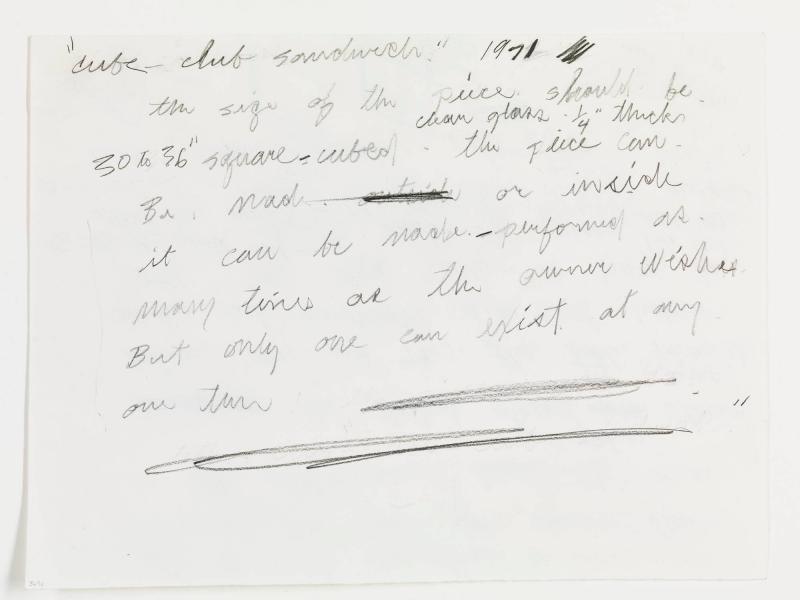 "cube - club sandwich." 1971
the size of the piece should be.
clear glass. 1/4" thick
30 to 36" square - cubed. the piece can.
Be. Made. outside or inside
it can be made. - performed as.
many times as the owner wishes
But only one can exist. at any.
one time "